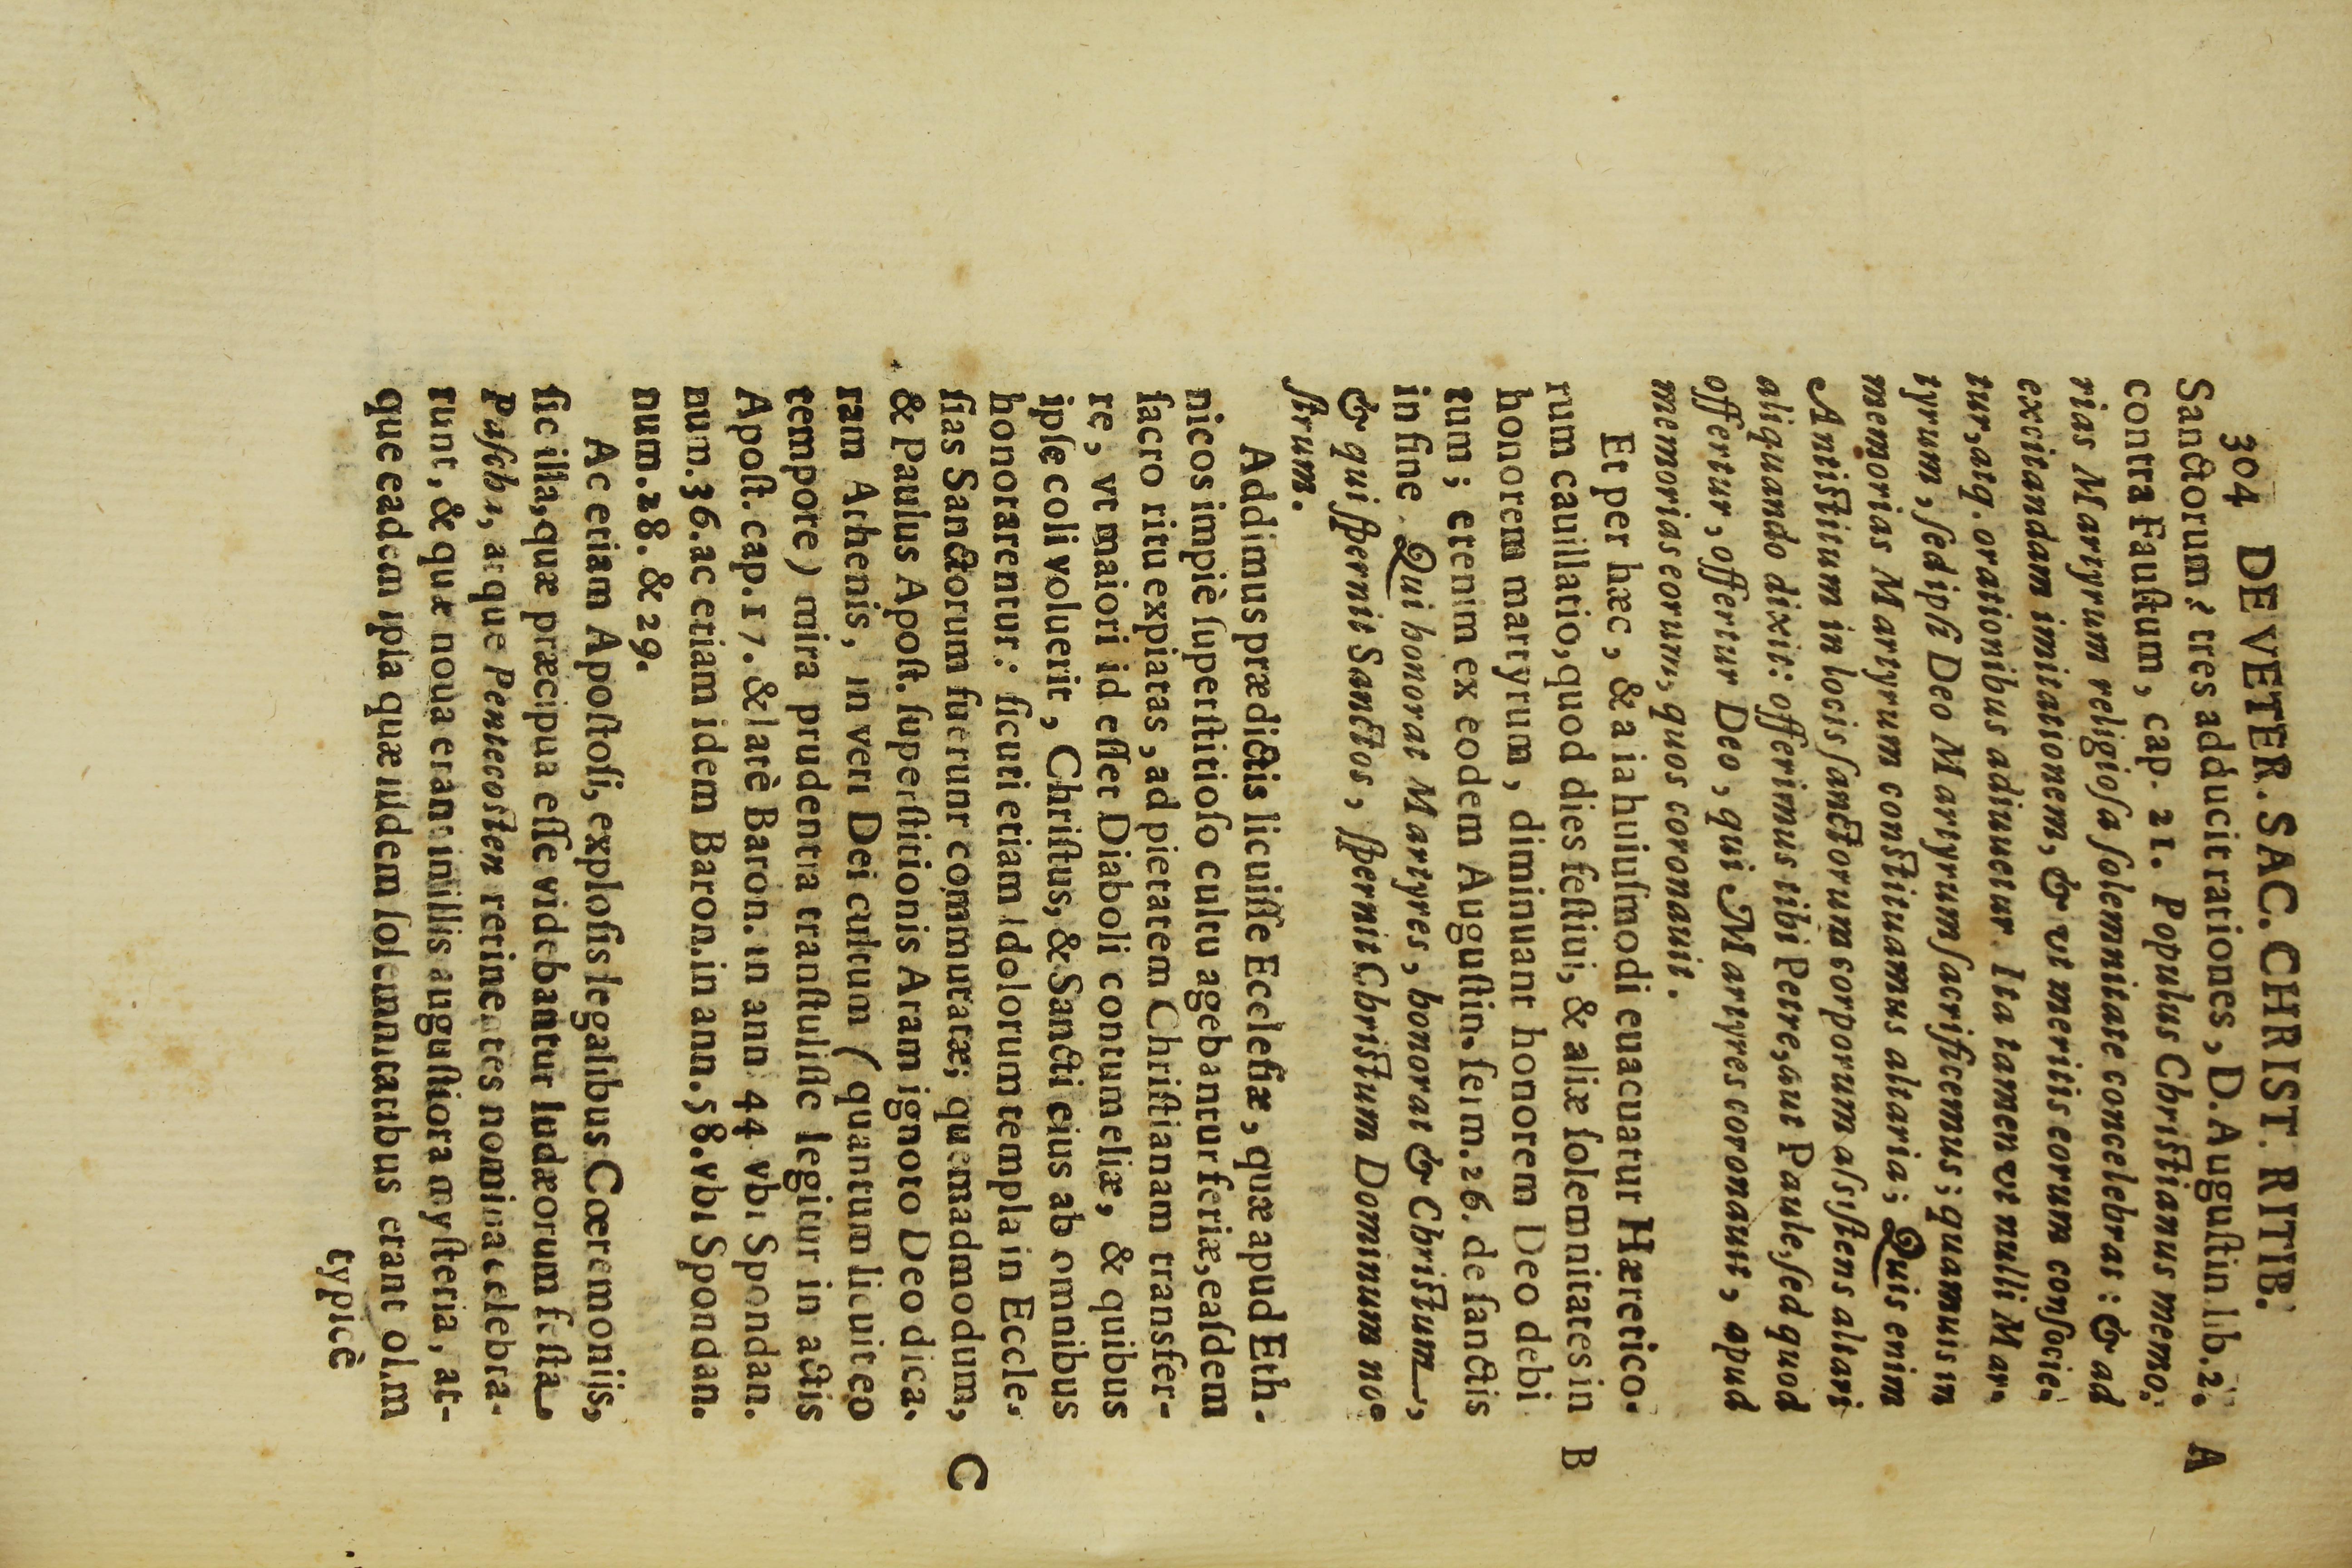 304 DE VETER. SAC. CHRIST. RITIB.
Sanctorum; tres adducit rationes, D. Augustin lib. 2. A
contra Faustum, cap. 21. Populus Christianus memo-
rias Martyrum religiosa solemnitate concelebrat: & ad
excitandam imitationem, & vt meritis eorum consocie-
tur, atq. orationibus adiuuetur. Ita tamen vt nulli Mar-
tyrum, sed ipsi Deo Martyrum sacrificemus; quamuis in
memorias Martyrum constituamus altaria; Quis enim
Antistitum in locis sanctorum corporum assistens altari
aliquando dixit: offerimus tibi Petre, aut Paule, sed quod
offertur, offertur Deo, qui Martyres coronauit, apud
memorias eorum, quos coronauit.
Et per hæc, & a ia huiusmodi euacuatur Hæretico-
rum cauillatio, quod dies festiui, & aliæ solemnitates in B
honorem martyrum, diminuant honorem Deo debi
tum; etenim ex eodem Augustin. serm. 26. de sanctis
in fine. Qui honorat Martyres, honorat & Christum,
& qui spernit Sanctos, spernit Christum Dominum no-
strum.
Addimus prædictis licuisse Ecclesiæ, quæ apud Eth-
nicos impiè superstitioso cultu agebantur feriæ, easdem
sacro ritu expiatas, ad pietatem Christianam transfer-
re, vt maiori id esset Diaboli contumeliæ, & quibus
ipse coli voluerit, Christus, & Sancti eius ab omnibus
honorarentur: sicuti etiam Idolorum templa in Eccle-
sias Sanctorum fuerunt commutatæ; quemadmodum, C
& Paulus Apost. superstitionis Aram ignoto Deo dica-
ram Athenis, in veri Dei cultum (quantum licuit eo
tempore) mira prudentia transtulisse legitur in actis
Apost. cap. 17. & latè Baron. in ann 44 vbi Spondan.
num. 36. ac etiam idem Baron. in ann. 58. vbi Spondan.
num. 28. & 29.
Ac etiam Apostoli, explosis legalibus Cœremonijs,
sic illa, quæ præcipua esse videbantur Iudæorum festa,
Pascha, atque Pentecosten retinentes nomina celebra-
runt, & quæ noua erant in illis augustiora mysteria, at-
que eadem ipsa quæ iisdem solemnitatibus erant olim
typicè